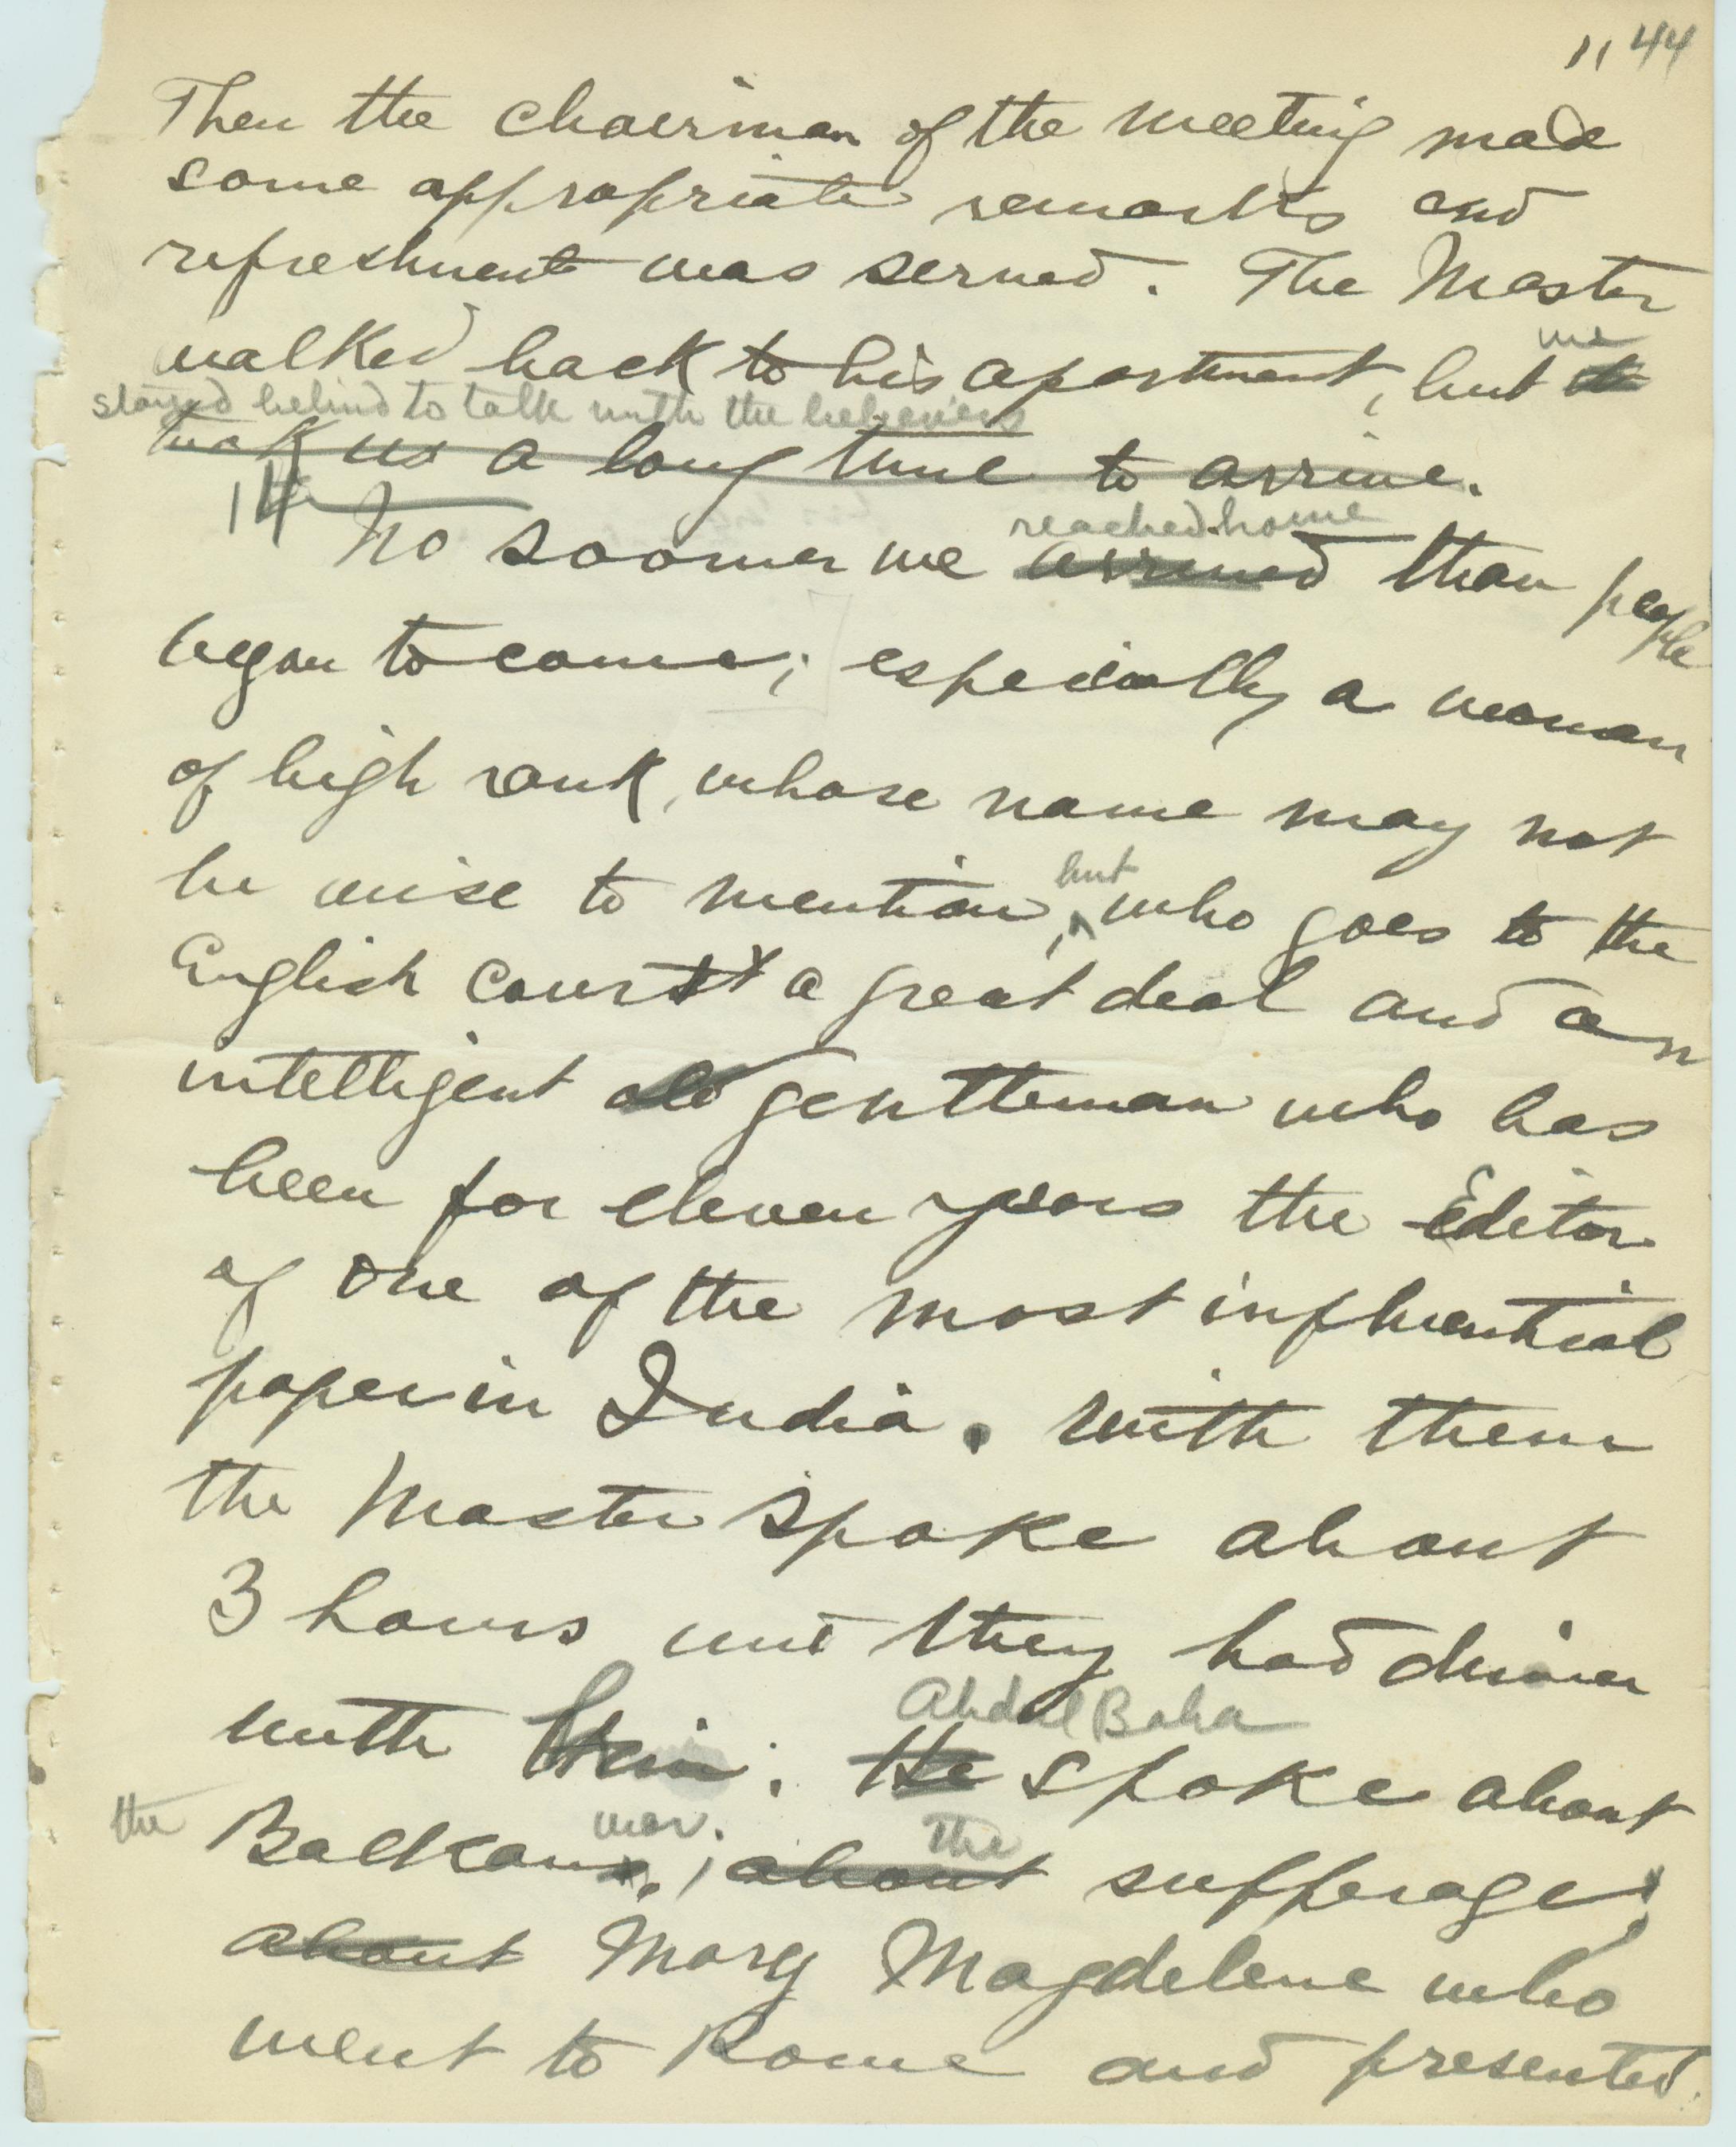 11 44
Then the chairman of the meeting made
some appropriate remarks and
refreshment was served. The Master
we
walked back to his apartment, but it
stayed behind to talk with the believers
took us a long time to arrive.
reached home
No sooner we arrived than people
began to come; especially a woman
of high rank, whose name may not
but
be wise to mention, who goes to the
English court a great deal and an
intelligent old gentleman who has
been for eleven years the Editor
of one of the most influential
paper in India. With them
the Master spoke about
3 hours and they had dinner
Abdul Baha
with Him. He spoke about
the war. The
Balkans, about sufferage,
about Mary Magdelene who
went to Rome and presented